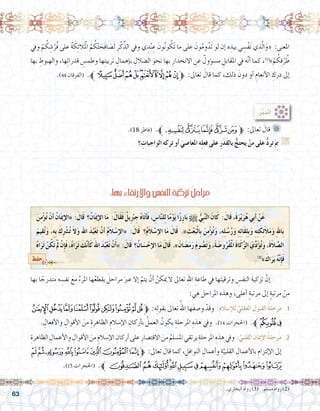 المعنى: والَّذي نفسي بيده إن لو تدومون على ما تكونون عندي وفي الذِّكر لصافحتكم الملائكة على فُرُشكم وفي
طُرُقكم(2)، كما أنَّه في المقابل مسؤولٌ عن الانحدار بها نحو الضلال بإهمال تربيتها وطمس قدراتها، والهبوط بها
إلى درك الأنعام أو دون ذلك، كما قال تعالى: ﴿إِنْ هُمْ إِلَّا كَالْأَنْعَامِ بَلْ هُمْ أَضَلُّ سَبِيلًا﴾. (الفرقان 44).
قال تعالى: ﴿وَمَن تَزَكَّىٰ فَإِنَّمَا يَتَزَكَّىٰ لِنَفْسِهِ﴾. (فاطر 18).
بمَ تردُّ على منْ يحتجُّ بالقدر على فعله المعاصي أو تركه الواجبات؟
مراحل تزكية النفس والارتقاء بها:
عن أبي هُرَيْرَةَ، قَالَ: كَانَ النَّبِيُّ ﷺ بَارِزًا يَوْمًا لِلنَّاسِ، فَأَتَاهُ جِبْرِيلُ فَقَالَ: مَا الإِيمَانُ؟ قَالَ: «الإِيمَانُ أَنْ تُؤْمِنَ
بِاللَّهِ وَمَلاَئِكَتِهِ وَبِلِقَائِهِ وَرُسُلِهِ، وَتُؤْمِنَ بِالْبَعْثِ». قَالَ: مَا الإِسْلاَمُ؟ قَالَ: «الإِسْلاَمُ: أَنْ تَعْبُدَ اللَّهَ وَلاَ تُشْرِكَ بِهِ، وَتُقِيمَ
الصَّلاَةَ، وَتُؤَدِّيَ الزَّكَاةَ المَفْرُوضَةَ، وَتَصُومَ رَمَضَانَ». قَالَ: مَا الإِحْسَانُ؟ قَالَ: «أَنْ تَعْبُدَ اللَّهَ كَأَنَّكَ تَرَاهُ، فَإِنْ لَمْ تَكُنْ تَرَاهُ
فَإِنَّهُ يَرَاكَ»(3)
حفظ
إنَّ تزكية النفس وترقيتها في طاعة الله تعالى لا يمكنُ أنْ يتمَّ إلَّا عبرَ مراحل يقطعُها المرءُ مع نفسه متدرجًا بها
منْ مرتبة إلى مرتبة أعلى، وهذه المراحل هي:
1. مرحلةُ القبول العقليِّ للإسلام: وصفها الله تعالى بقوله: ﴿قُل لَّمْ تُؤْمِنُوا وَلَٰكِن قُولُوا أَسْلَمْنَا وَلَمَّا يَدْخُلِ الْإِيمَانُ
فِي قُلُوبِكُمْ﴾. (الحجرات 14). وفي هذه المرحلة يكونُ العملُ بأركان الإسلام الظاهرة من الأقوال والأفعال.
2. مرحلةُ الإيمان القلبيِّ: وفي هذه المرحلة يرتقي المسلمُ من الاقتصار على أركان الإسلام من الأقوال والأعمال الظاهرة
إلى الالتزام بالأعمال القلبيَّة وأعمال النوافل، كما قال تعالى: ﴿إِنَّمَا الْمُؤْمِنُونَ الَّذِينَ آمَنُوا بِاللَّهِ وَرَسُولِهِ ثُمَّ لَمْ
يَرْتَابُوا وَجَاهَدُوا بِأَمْوَالِهِمْ وَأَنفُسِهِمْ فِي سَبِيلِ اللَّهِ أُولَٰئِكَ هُمُ الصَّادِقُونَ﴾. (الحجرات 15).
(2) رواه مسلم. (3) رواه البخاري.
63